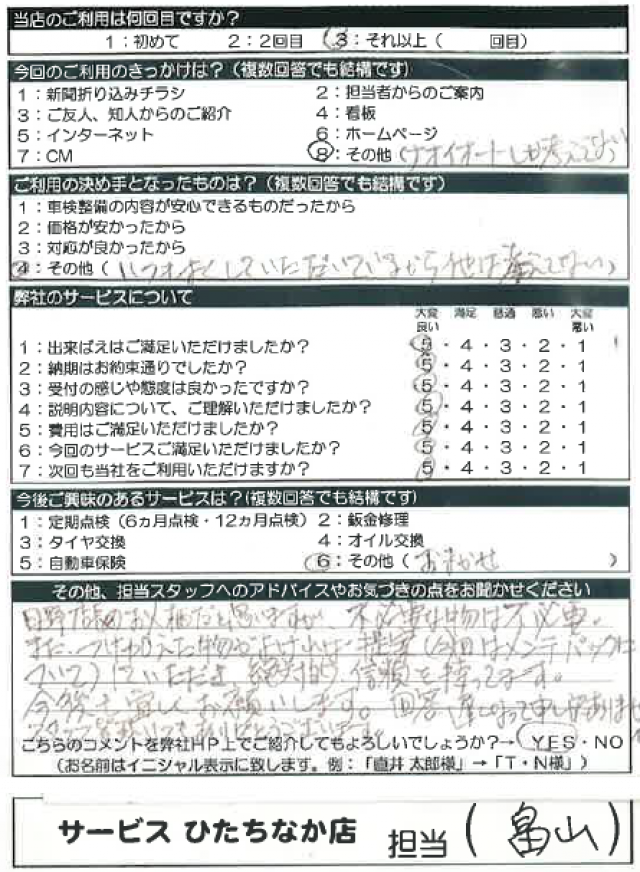 当店のご利用は何回目ですか？
1：初めて　2：2回目　3：それ以上（　　回目）
今回のご利用のきっかけは？（複数回答でも結構です）
1：新聞折り込みチラシ　2：担当者からのご案内
3：ご友人、知人からのご紹介　4：看板
5：インターネット　6：ホームページ
7：CM　8：その他（ナオイオートしか考えてない）
ご利用の決め手となったものは？（複数回答でも結構です）
1：車検整備の内容が安心できるものだったから
2：価格が安かったから
3：対応が良かったから
4：その他（いつもよくしていただいているから他は考えてない）
弊社のサービスについて
大変良い　満足　普通　悪い　大変悪い
1：出来ばえはご満足いただけましたか？　5・4・3・2・1
2：納期はお約束通りでしたか？　5・4・3・2・1
3：受付の感じや態度は良かったですか？　5・4・3・2・1
4：説明内容について、ご理解いただけましたか？　5・4・3・2・1
5：費用はご満足いただけましたか？　5・4・3・2・1
6：今回のサービスご満足いただけましたか？　5・4・3・2・1
7：次回も当社をご利用いただけますか？　5・4・3・2・1
今後ご興味のあるサービスは？（複数回答でも結構です）
1：定期点検（6ヵ月点検・12ヵ月点検）　2：鈑金修理
3：タイヤ交換　4：オイル交換
5：自動車保険　6：その他（おまかせ）
その他、担当スタッフへのアドバイスやお気づきの点をお聞かせください
日野店長のお人柄だと思いますが、不必要な物は不必要。
また、つけかえた物がよければ提案（今回はメンテパックに
ついて）していただき、絶対的信頼を持ってます。
今後も宜しくお願いします。回答、遅くなって申し訳ありません
こちらのコメントを弊社HP上でご紹介してもよろしいでしょうか？→　YES・NO
（お名前はイニシャル表示に致します。例：「直井 太郎様」→「T・N様」）
サービス ひたちなか店　担当（畠山）